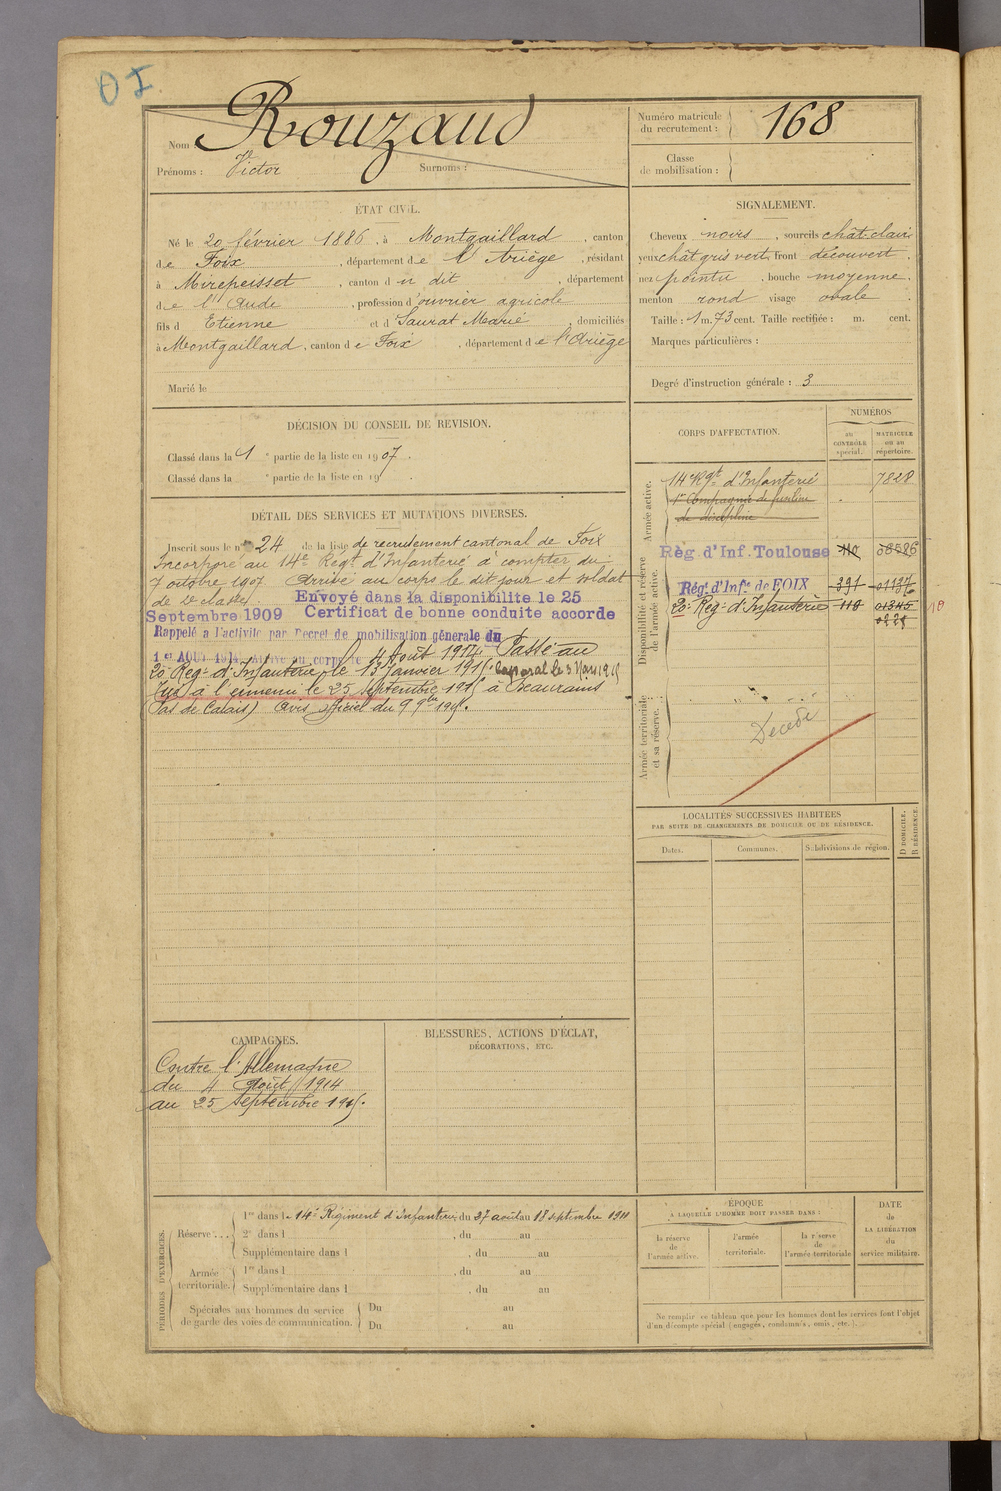 OI
Nom : Rouzaud
Prénoms : Victor Surnoms :
Numéro matricule
du recrutement : 168
Classe
de mobilisation :
ÉTAT CIVIL.
Né le 20 février 1886, à Montgaillard, canton
de Foix, département de l'Ariège, résidant
à Mirepeisset, canton d u dit, département
de l'Aude, profession d'ouvrier agricole
fils d Etienne et d Saurat Marie, domiciliés
à Montgaillard, canton de Foix, département de l'Ariège
Marié le
SIGNALEMENT.
Cheveux noirs, sourcils chât-clair
yeux chât gris vert, front découvert,
nez pointu, bouche moyenne
menton rond visage ovale
Taille : 1 m. 73 cent. Taille rectifiée : m. cent.
Marques particulières :
Degré d'instruction générale : 3
DÉCISION DU CONSEIL DE REVISION.
Classé dans la 1 e partie de la liste en 1907.
Classé dans la e partie de la liste en 19
DÉTAIL DES SERVICES ET MUTATIONS DIVERSES.
Inscrit sous le n° 24 de la liste de recrutement cantonal de Foix
Incorporé au 14e Régt d'Infanterie à compter du
7 octobre 1907. Arrivé au corps le dit jour et soldat
de 2e classe.
Envoyé dans la disponibilite le 25
Septembre 1909 Certificat de bonne conduite accorde
Rappelé a l'activite par Decret de mobilisation générale du
1er AOUT 1914, Arrivé au corps le 4 Août 1914 Passé au
20e Régt d'Infanterie, le 13 Janvier 1915. Caporal le 3 Mars 1915
Tué à l'ennemi le 25 septembre 1915 à Beaurains
(Pas de Calais) Avis officiel du 9 9bre 1915.
CORPS D'AFFECTATION.
NUMÉROS
au
CONTRÔLE
spécial.
MATRICULE
ou au
répertoire.
Armée active.
14e Régt d'Infanterie 7828
1re Compagnie de fusiliers
de discipline
Disponibilité et réserve
de l'armée active.
Règ. d'Inf. Toulouse 110 08586
Régt d'Infie de FOIX 391 01134
20e Regt d'Infanterie 110 01345
Armée territoriale
et sa réserve.
Décédé
LOCALITÉS SUCCESSIVES HABITÉES
PAR SUITE DE CHANGEMENTS DE DOMICILE OU DE RÉSIDENCE.
Dates.
Communes.
Subdivisions de région.
D DOMICILE.
R RÉSIDENCE.
CAMPAGNES.
Contre l'Allemagne
du 4 Août 1914
au 25 septembre 1915.
BLESSURES, ACTIONS D'ÉCLAT,
DÉCORATIONS, ETC.
PÉRIODES D'EXERCICES.
Réserve...
1re dans le 14e Régiment d'infanterie, du 27 août au 18 septembre 1911
2e dans l , du au
Supplémentaire dans l , du au
Armée
territoriale.
1re dans l , du au
Supplémentaire dans l , du au
Spéciales aux hommes du service
de garde des voies de communication.
Du au
Du au
ÉPOQUE
À LAQUELLE L'HOMME DOIT PASSER DANS :
la réserve
de
l'armée active.
l'armée
territoriale.
la réserve
de
l'armée territoriale
DATE
de
LA LIBÉRATION
du
service militaire.
Ne remplir ce tableau que pour les hommes dont les services font l'objet
d'un décompte spécial (engagés, condamnés, omis, etc.).